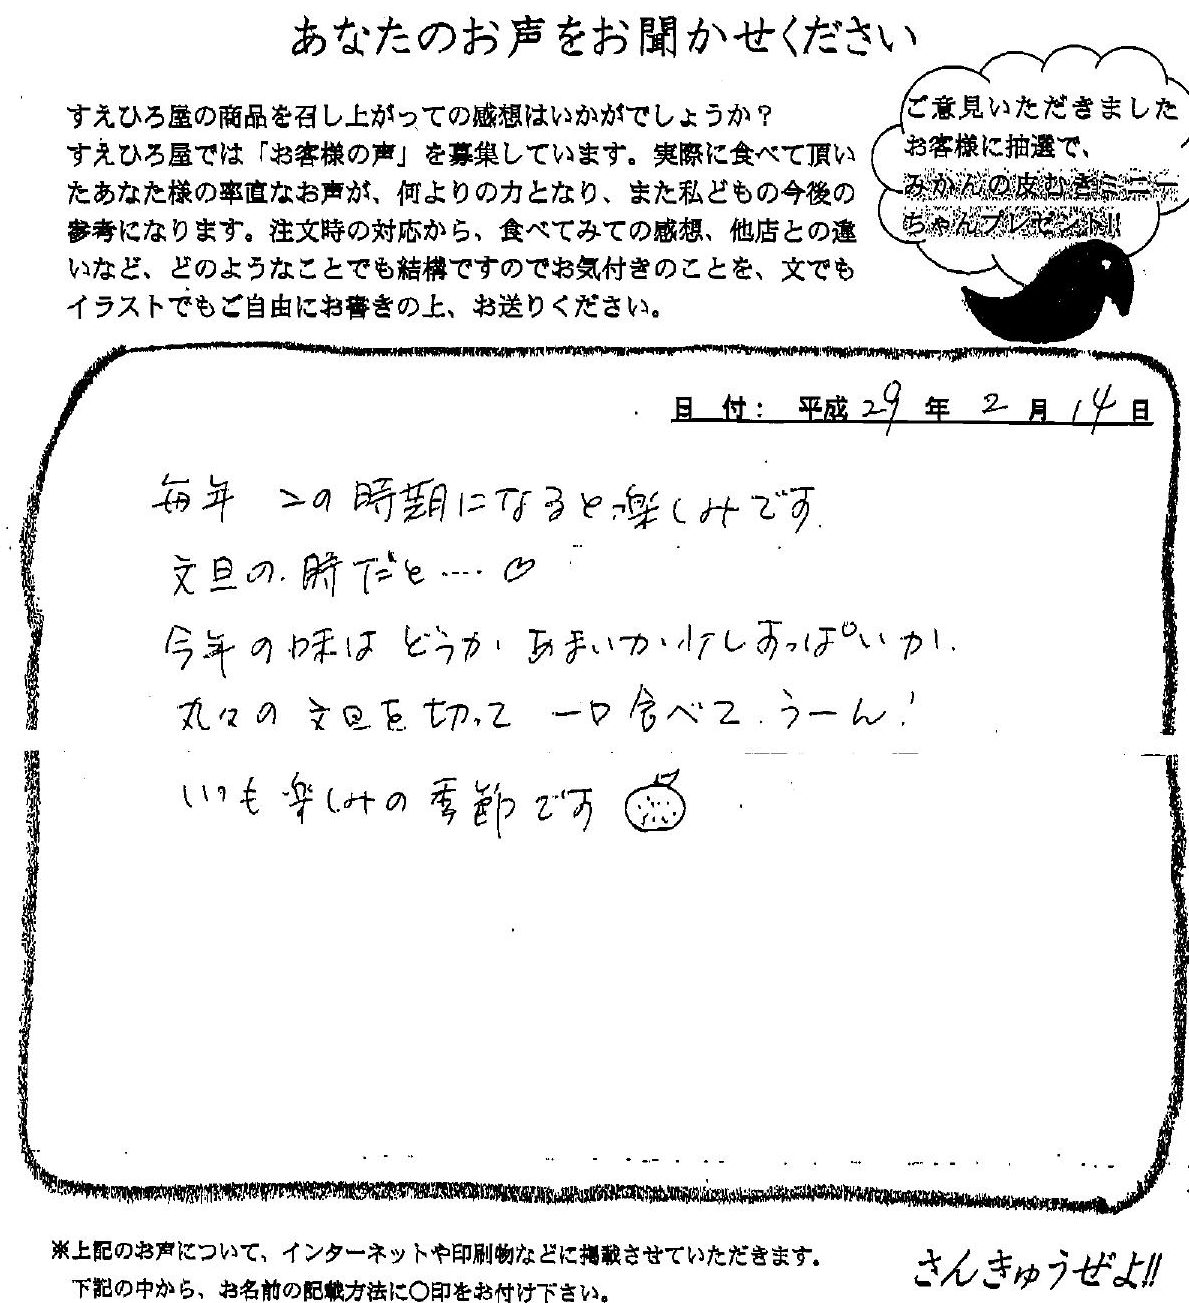 あなたのお声をお聞かせください
すえひろ屋の商品を召し上がっての感想はいかがでしょうか？
すえひろ屋では「お客様の声」を募集しています。実際に食べて頂い
たあなた様の率直なお声が、何よりの力となり、また私どもの今後の
参考になります。注文時の対応から、食べてみての感想、他店との違
いなど、どのようなことでも結構ですのでお気付きのことを、文でも
イラストでもご自由にお書きの上、お送りください。
ご意見いただきました
お客様に抽選で、
みかんの皮むきミニー
ちゃんプレゼント!!
日 付： 平成 29 年 2 月 14 日
毎年 この時期になると、楽しみです.
文旦の.時だと....♡
今年の味は どうか あまいか.少しすっぱいか.
丸々の 文旦を切って 一口食べて.うーん!
いつも楽しみの季節です
※上記のお声について、インターネットや印刷物などに掲載させていただきます。
下記の中から、お名前の記載方法に〇印をお付け下さい。
さんきゅうぜよ!!